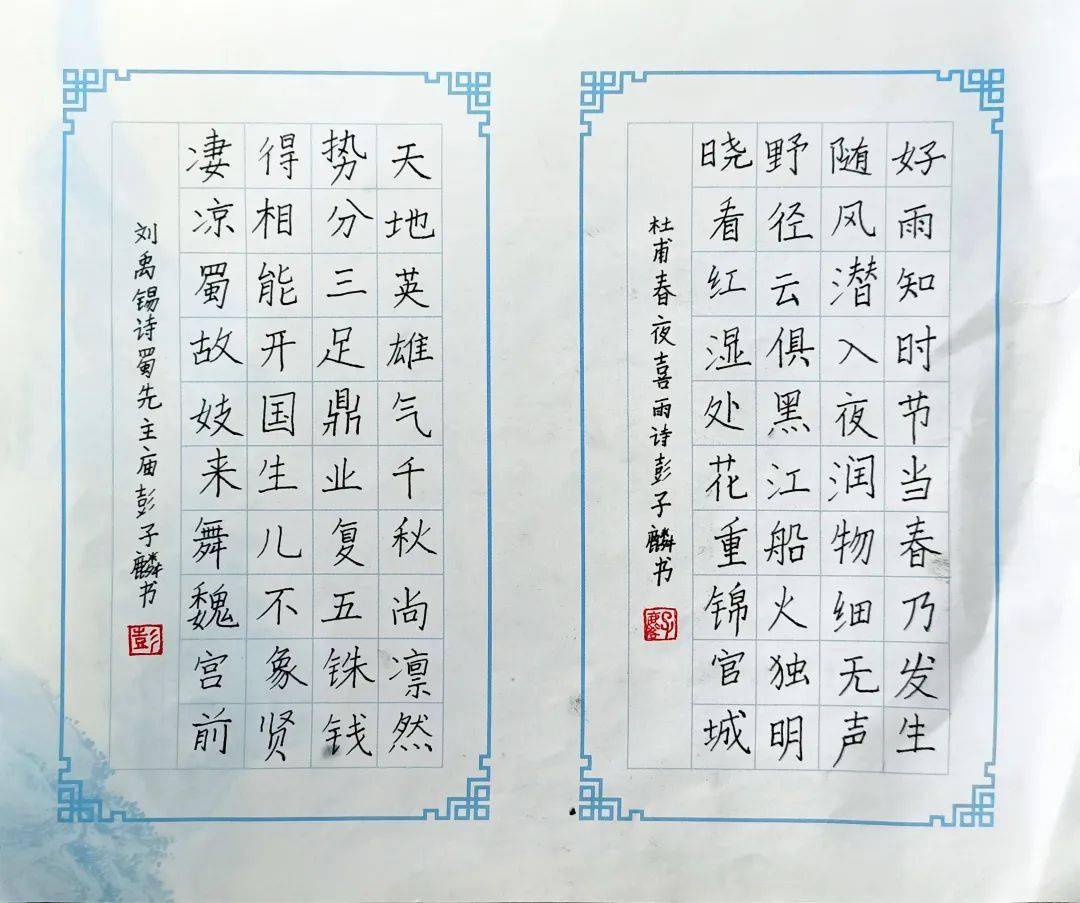 好雨知时节当春乃发生
随风潜入夜润物细无声
野径云俱黑江船火独明
晓看红湿处花重锦官城
杜甫春夜喜雨诗彭子麟书
天地英雄气千秋尚凛然
势分三足鼎业复五铢钱
得相能开国生儿不象贤
凄凉蜀故妓来舞魏宫前
刘禹锡诗蜀先主庙彭子麟书
彭